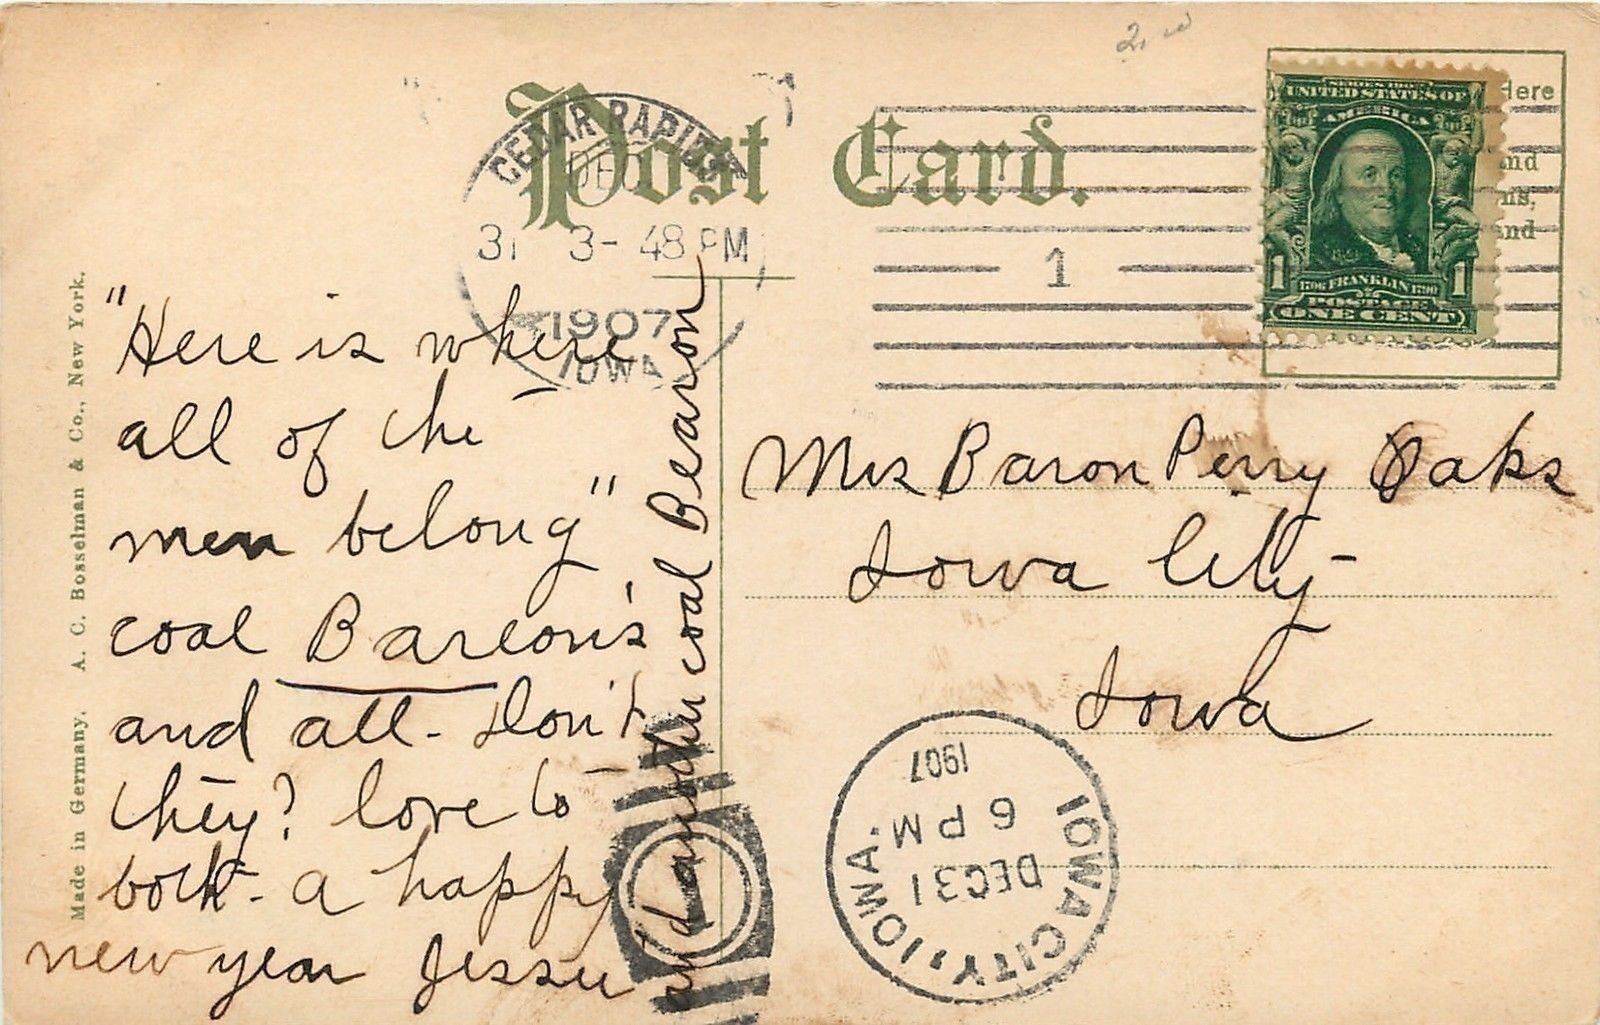 2.
Post Card.
CEDAR RAPIDS
DEC
31 3-48 PM
1907
IOWA
1
Here
and
ns,
and
SERIES 1902
UNITED STATES OF
AMERICA
1706 FRANKLIN 1790
POSTAGE
1 ONE CENT 1
"Here is where
all of the
men belong"
coal Bareon's
and all - Don't
they? love to
both - a happy
new year Jessie
and another coal Bearon
Mrs Baron Perry Oaks
Iowa City
Iowa
IOWA CITY, IOWA.
DEC 31
6 PM
1907
Made in Germany. A. C. Bosselman & Co., New York.